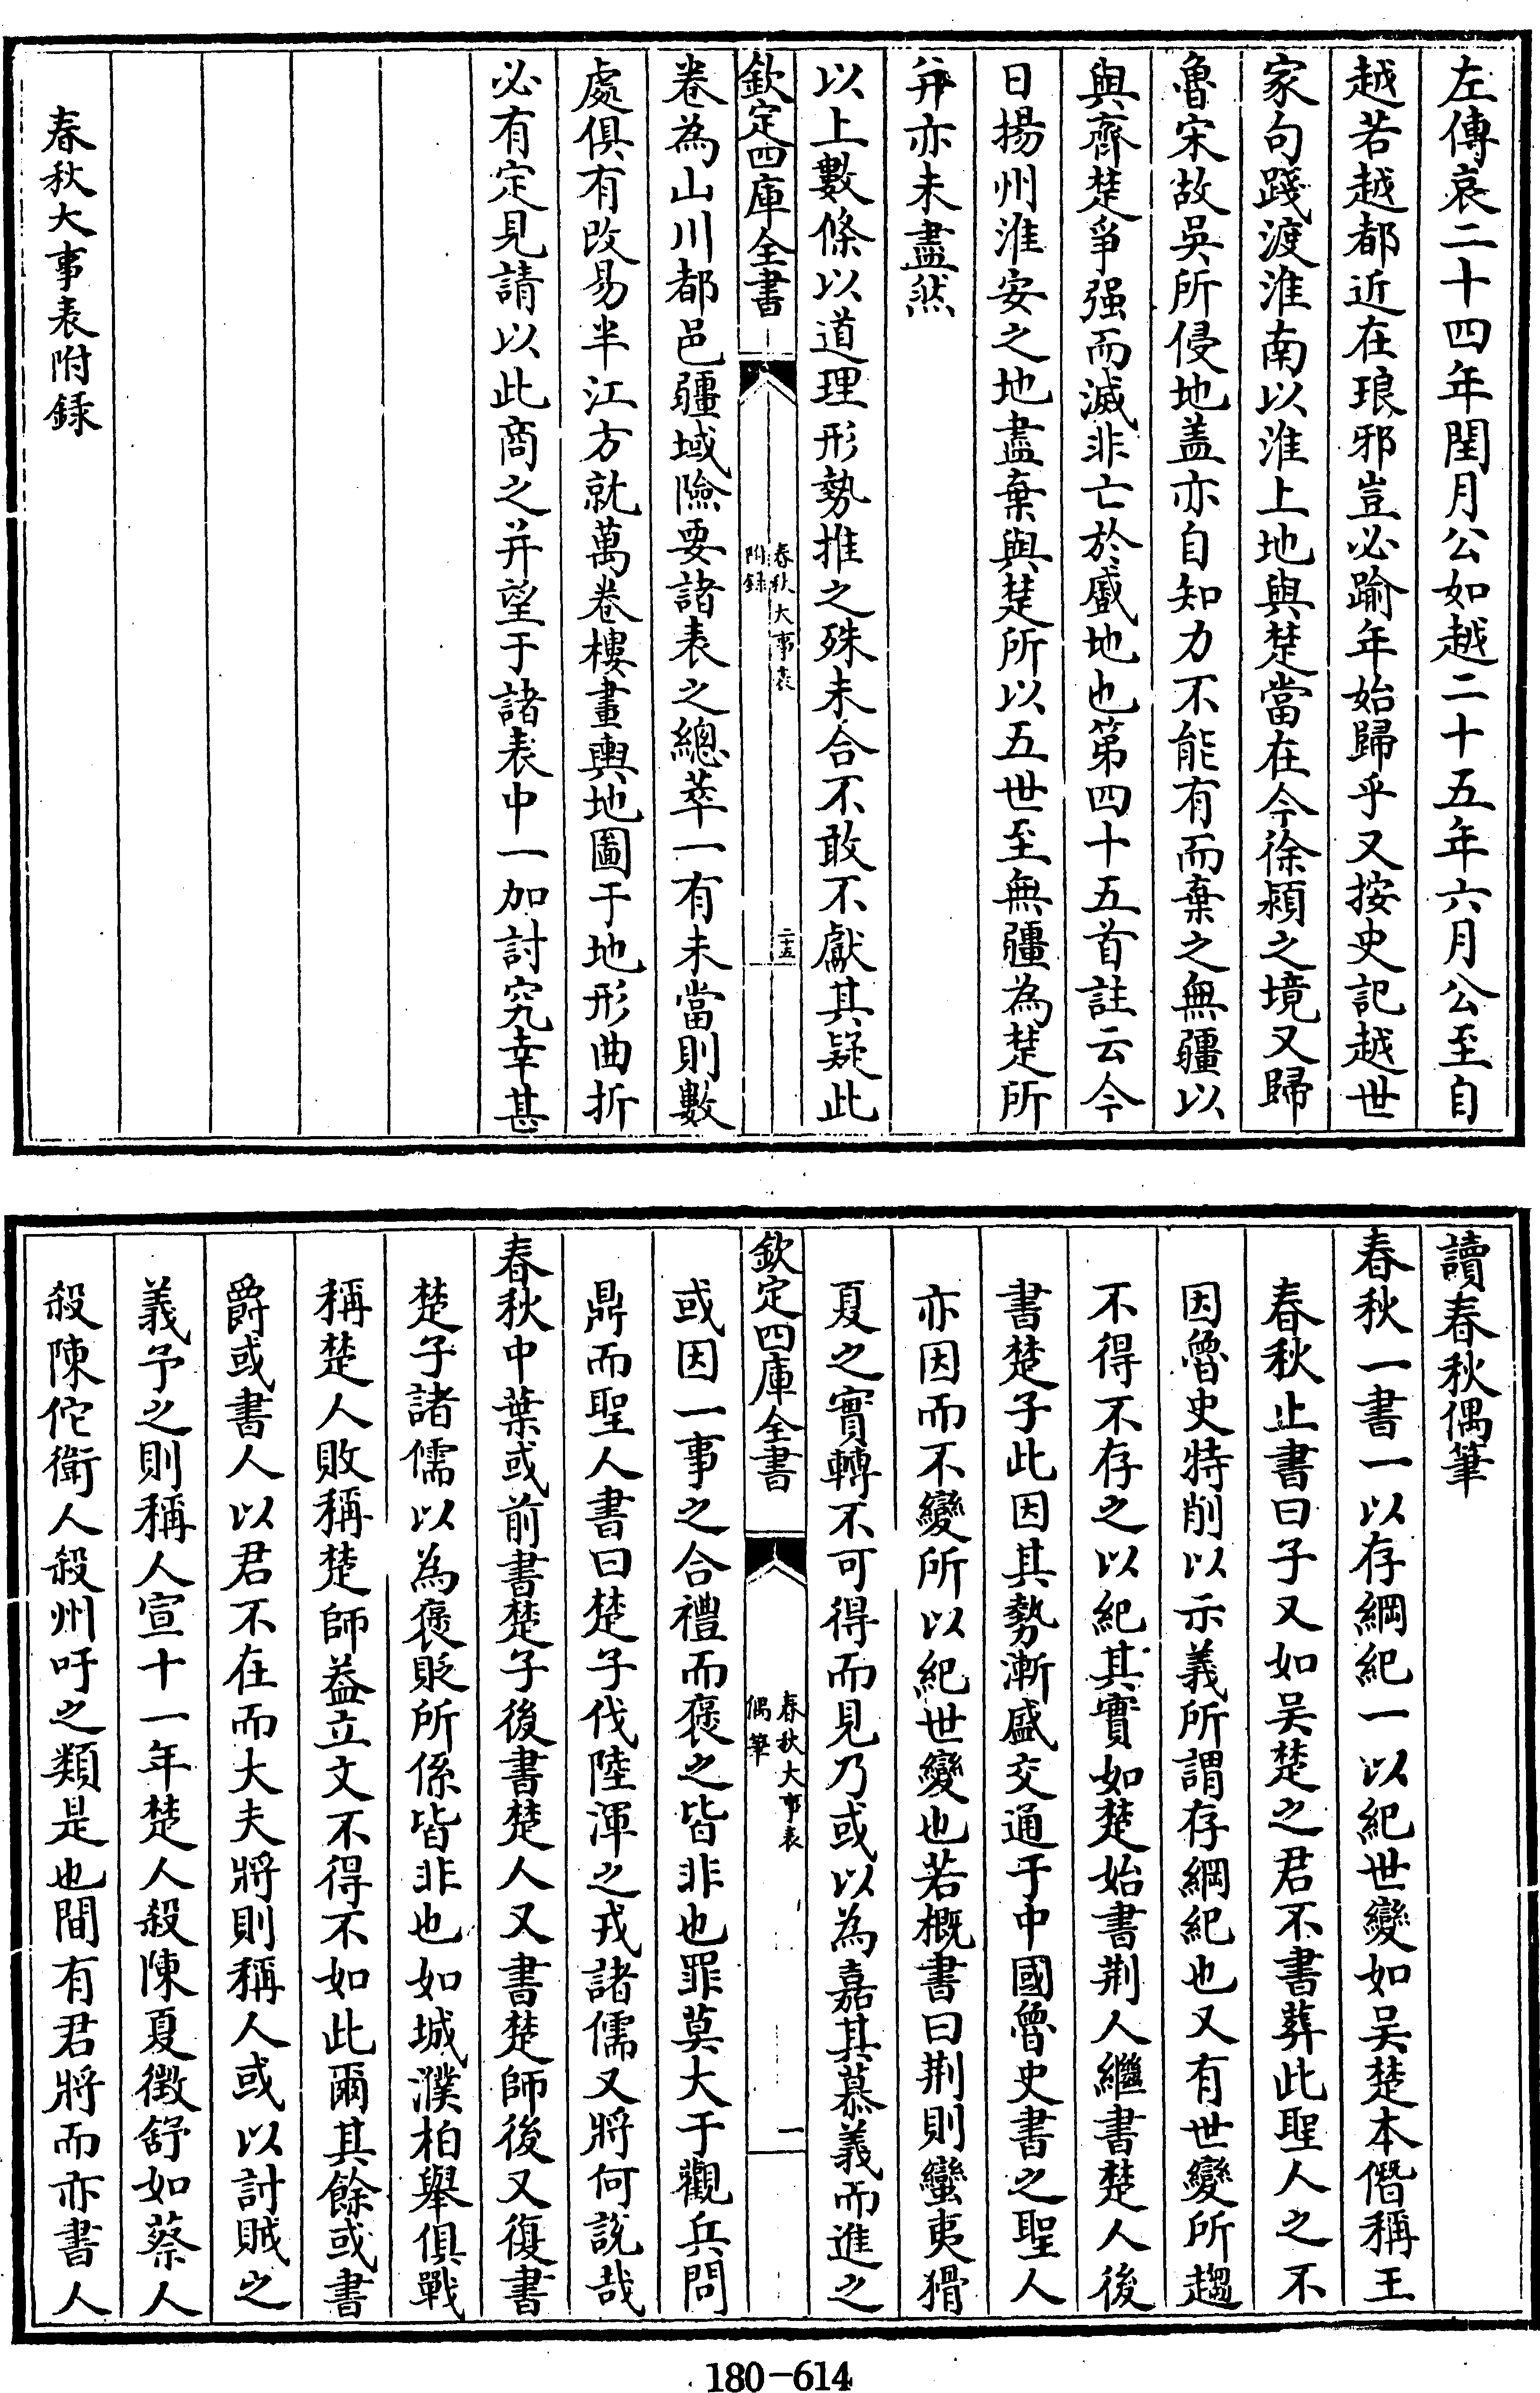 左傳哀二十四年閏月公如越二十五年六月公至自
越若越都近在琅邪豈必踰年始歸乎又按史記越世
家句踐渡淮南以淮上地與楚當在今徐潁之境又歸
魯宋故吳所侵地盖亦自知力不能有而棄之無疆以
與齊楚爭强而滅非亡於盛地也第四十五首註云今
日揚州淮安之地盡棄與楚所以五世至無疆為楚所
并亦未盡然
以上數條以道理形勢推之殊未合不敢不獻其疑此
欽定四庫全書
春秋大事表
附録
二十五
卷為山川都邑疆域險要諸表之總萃一有未當則數
處俱有改易半江方就萬卷樓畫輿地圖于地形曲折
必有定見請以此商之并望于諸表中一加討究幸甚
春秋大事表附録
讀春秋偶筆
春秋一書一以存綱紀一以紀世變如吳楚本僭稱王
春秋止書曰子又如吳楚之君不書葬此聖人之不
因魯史特削以示義所謂存綱紀也又有世變所趨
不得不存之以紀其實如楚始書荆人繼書楚人後
書楚子此因其勢漸盛交通于中國魯史書之聖人
亦因而不變所以紀世變也若概書曰荆則蠻夷猾
夏之實轉不可得而見乃或以為嘉其慕義而進之
欽定四庫全書
春秋大事表
偶筆
一
或因一事之合禮而褒之皆非也罪莫大于觀兵問
鼎而聖人書曰楚子伐陸渾之戎諸儒又將何説哉
春秋中葉或前書楚子後書楚人又書楚師後又復書
楚子諸儒以為褒貶所係皆非也如城濮柏舉俱戰
稱楚人敗稱楚師益立文不得不如此爾其餘或書
爵或書人以君不在而大夫將則稱人或以討賊之
義予之則稱人宣十一年楚人殺陳夏徵舒如蔡人
殺陳佗衛人殺州吁之類是也間有君將而亦書人
180-614